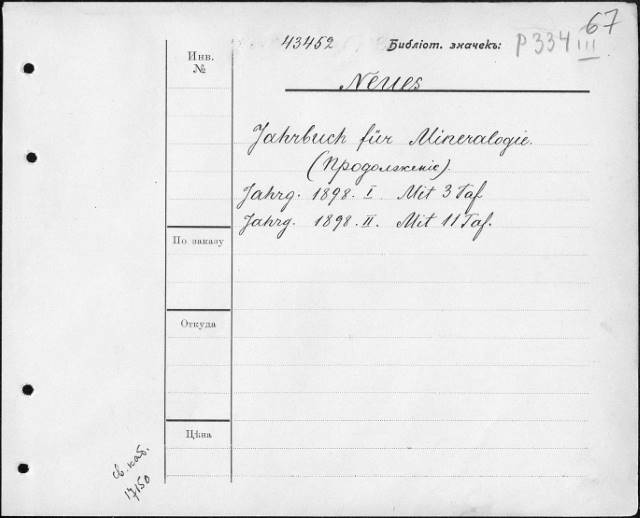 67
43452 Библіот. значекъ: Р 334 III
Инв.
№
Neues
Jahrbuch für Mineralogie.
(Продолженіе).
Jahrg. 1898. I. Mit 3 Taf
Jahrg. 1898. II. Mit 11 Taf.
По заказу
Откуда
Цѣна
св. каб.
17150